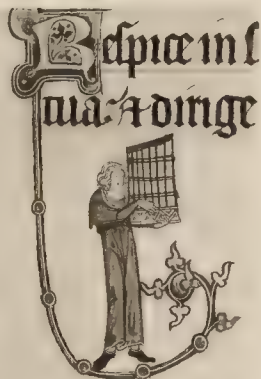 Reſpice in ſ
tua: ⁊ dirige